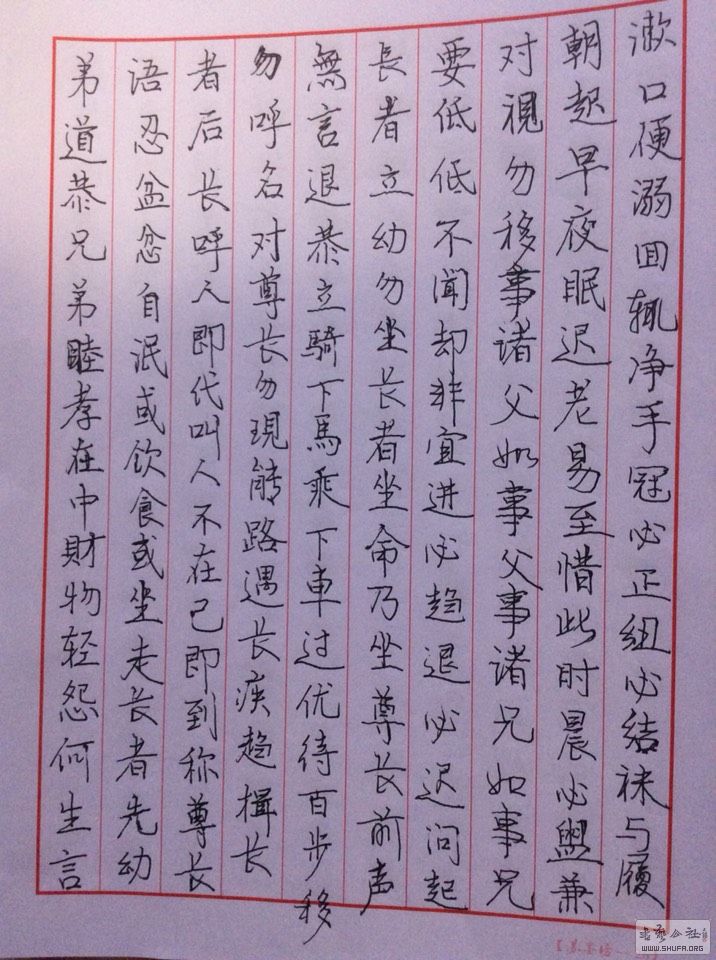 弟道恭兄弟睦孝在中財物轻怨何生言
语忍盆忿自泯或饮食或坐走长者先幼
者后长呼人即代叫人不在己即到称尊长
勿呼名对尊长勿現能路遇长疾趋揖长
無言退恭立騎下馬乘下車过优待百步移
長者立幼勿坐长者坐命乃坐尊长前声
要低低不聞却非宜进必趋退必迟问起
对視勿移事诸父如事父事诸兄如事兄
朝起早夜眠迟老易至惜此时晨必盥兼
漱口便溺囬辄净手冠必正组必结袜与履
WWW.SHUFA.ORG